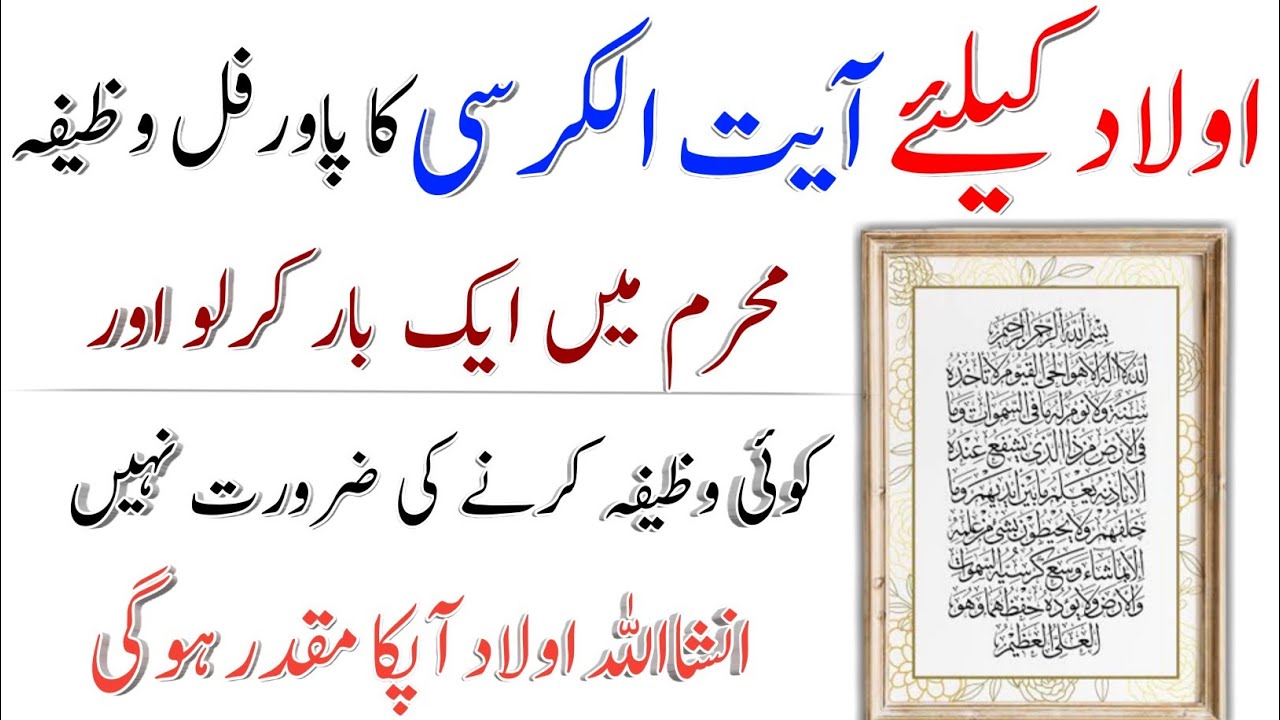 اولاد کیلئے آیت الکرسی کا پاور فل وظیفہ
محرم میں ایک بار کرلو اور
کوئی وظیفہ کرنے کی ضرورت نہیں
انشااللہ اولاد آپکا مقدر ہوگی
بسم الله الرحمن الرحيم
الله لا اله الا هو الحي القيوم لا تاخذه
سنة ولا نوم له ما في السموات وما
في الارض من ذا الذي يشفع عنده
الا باذنه يعلم ما بين ايديهم وما
خلفهم ولا يحيطون بشيء من علمه
الا بما شاء وسع كرسيه السموات
والارض ولا يوده حفظهما وهو
العلي العظيم